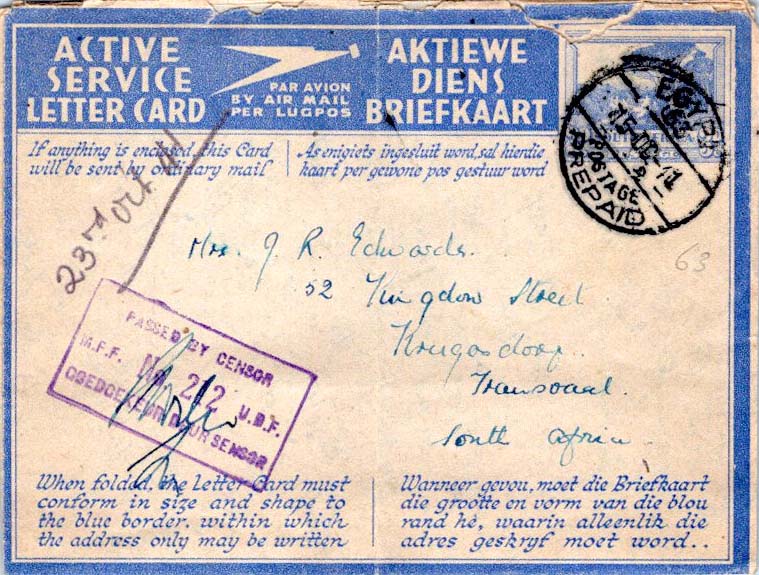 ACTIVE
SERVICE
LETTER CARD
PAR AVION
BY AIR MAIL
PER LUGPOS
AKTIEWE
DIENS
BRIEFKAART
EGYPT
POSTAGE
PREPAID
If anything is enclosed, this Card
will be sent by ordinary mail
As enigiets ingesluit word, sal hierdie
kaart per gewone pos gestuur word
23rd Oct 41
Mrs. J. R. Edwards.
52 Kingdow Street
Krugersdorp.
Transvaal.
South Africa.
63
PASSED BY CENSOR
M.F.F. No 212 U.D.F.
GOEDGEKEUR DEUR SENSOR
When folded, the Letter Card must
conform in size and shape to
the blue border, within which
the address only may be written
Wanneer gevou, moet die Briefkaart
die grootte en vorm van die blou
rand hê, waarin alleenlik die
adres geskryf moet word..